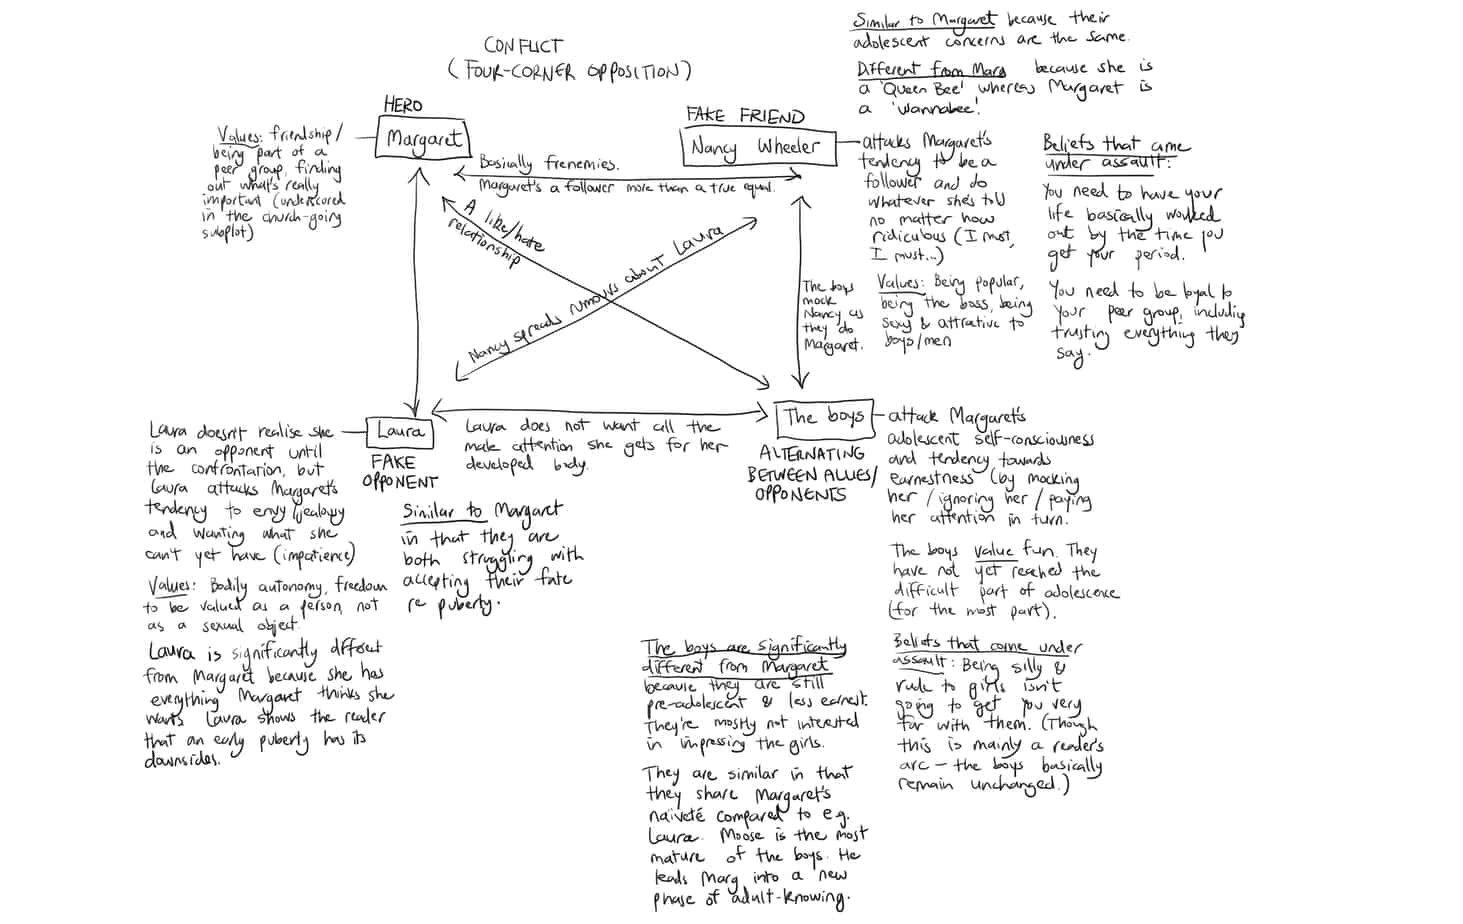 CONFLICT
(FOUR-CORNER OPPOSITION)
HERO
Margaret
Values: friendship/
being part of a
peer group, finding
out what's really
important (underscored
in the church-going
subplot)
FAKE FRIEND
Nancy Wheeler
Similar to Margaret because their
adolescent concerns are the same.
Different from Marg because she is
a 'Queen Bee' whereas Margaret is
a 'wannabee'.
attacks Margaret's
tendency to be a
follower and do
whatever she's told
no matter how
ridiculous (I must,
I must...)
Values: Being popular,
being the boss, being
sexy & attrative to
boys/men
Beliefs that came
under assault:
You need to have your
life basically worked
out by the time you
get your period.
You need to be loyal to
your peer group, including
trusting everything they
say.
Basically frenemies.
Margaret's a follower more than a true equal.
A like/hate
relationship
Nancy spreads rumours about Laura
The boys
mock
Nancy as
they do
Margaret.
Laura
FAKE
OPPONENT
Laura does not want all the
male attention she gets for her
developed body.
The boys
ALTERNATING
BETWEEN ALLIES/
OPPONENTS
Laura doesn't realise she
is an opponent until
the confrontation, but
Laura attacks Margaret's
tendency to envy/jealousy
and wanting what she
can't yet have (impatience)
Values: Bodily autonomy, freedom
to be valued as a person, not
as a sexual object.
Laura is significantly different
from Margaret because she has
everything Margaret thinks she
wants. Laura shows the reader
that an early puberty has its
downsides.
Similar to Margaret
in that they are
both struggling with
accepting their fate
re puberty.
attack Margaret's
adolescent self-consciousness
and tendency towards
earnestness (by mocking
her/ignoring her/paying
her attention in turn.
The boys value fun. They
have not yet reached the
difficult part of adolescence
(for the most part).
Beliefs that come under
assault: Being silly &
rude to girls isn't
going to get you very
far with them. (Though
this is mainly a reader's
arc – the boys basically
remain unchanged.)
The boys are significantly
different from Margaret
because they are still
pre-adolescent & less earnest.
They're mostly not interested
in impressing the girls.
They are similar in that
they share Margaret's
naïveté compared to e.g.
Laura. Moose is the most
mature of the boys. He
leads Marg into a new
phase of adult-knowing.